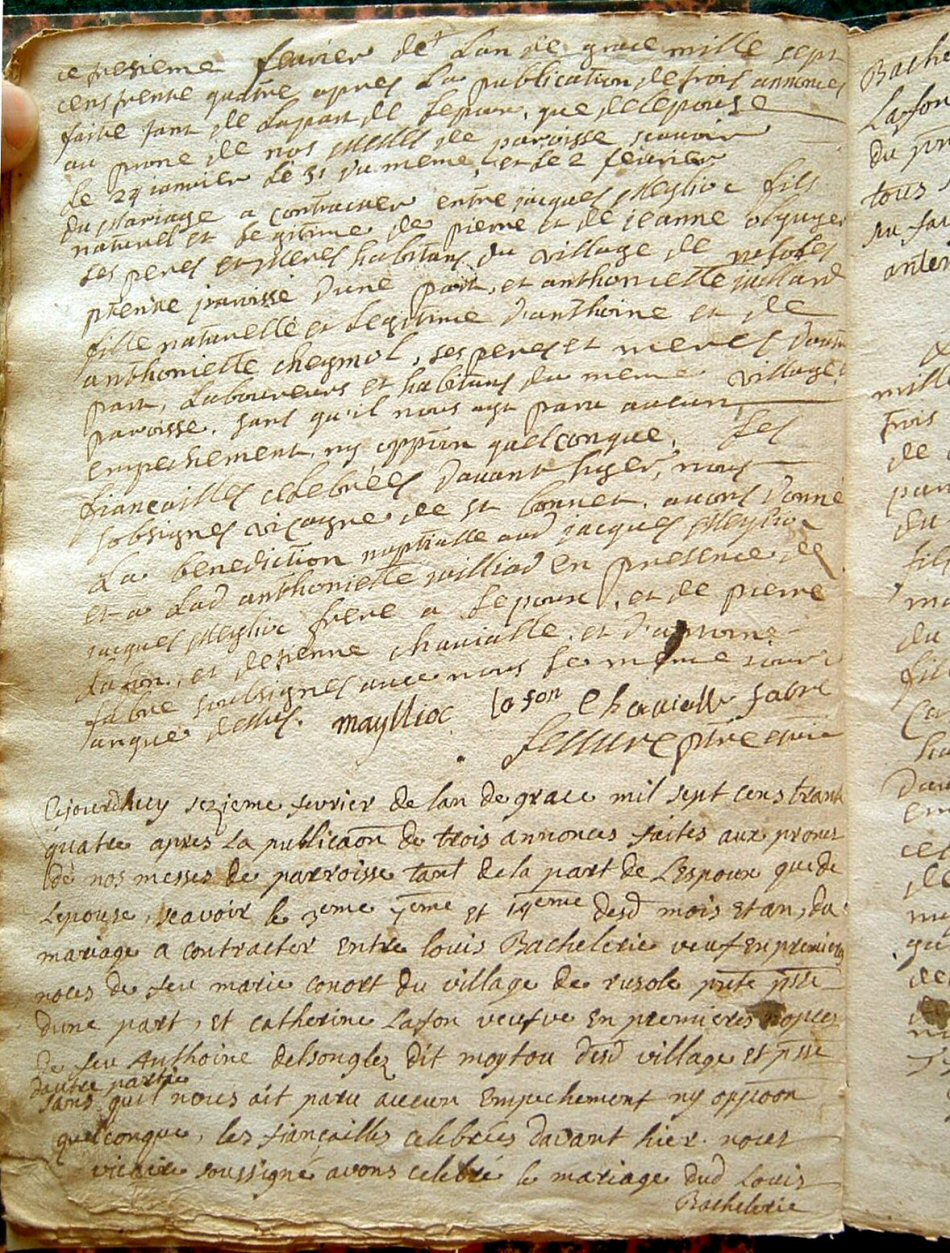 ce fevrier de Lan de grace mille sept
cens trente quatre apres La publication de trois annonces
faite tant de La part de Lepoux, que de Lepouse
au prone de nos messes de paroisse scavoir
Le 24 janvier Le 31 du meme, et Le 2 fevrier
du Mariage a contracter entre jacques fils
naturel et Legitime de pierre et de jeanne
ses peres et meres habitans du village de
paroisse d'une part, et anthoniette juillard
fille naturelle et Legitime d'anthoine et de
anthoniette cheymol, ses peres et meres d'autre
part, Laboureurs et habitans du meme village
paroisse. sans qu'il nous ayt paru aucun
empechement, ny oppon quelconque. Les
fiançailles celebrées d'avant hyer, nous
sobsignes de st bonnet, avons donné
La benediction nuptialle aud jacques
et a Lad anthoniette juilliard en presence de
jacques frere a Lepoux, et de pierre
Lafon, et detienne chavialle, et d'antoine
fabre soubsignes avec nous Le meme jour
que dessus. mayllioc lafon Chavialle fabre
ptre
Cejourdhuy sezieme fevrier de lan de grace mil sept cens trante
quatre apres la publicaon de trois annonces faites aux prones
de nos messes de parroisse tant de la part de Lespoux que de
Lepouse, scavoir le 3eme 7eme et 14eme desd mois et an, du
mariage a contracter Entre louis Bachelerie veuf en premieres
noces de feu marie conort du village de rusole pnte psse
dune part, et catherine Lafon veufve En premieres nopces
de feu Anthoine delsonglez dit moytou dud village et psse
dautre partie
sans quil nous ait paru aucun Empechement ny oppoon
quelconque, les fiançailles celebrées davant hier. nous
vicaire soussigné avons celebré le mariage dud Louis
Bachelerie
Bache
Lafon
du
tous
mille
trois
de